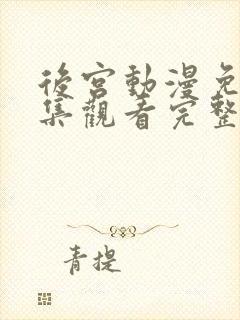 後宮動漫免
集觀看完整
青提